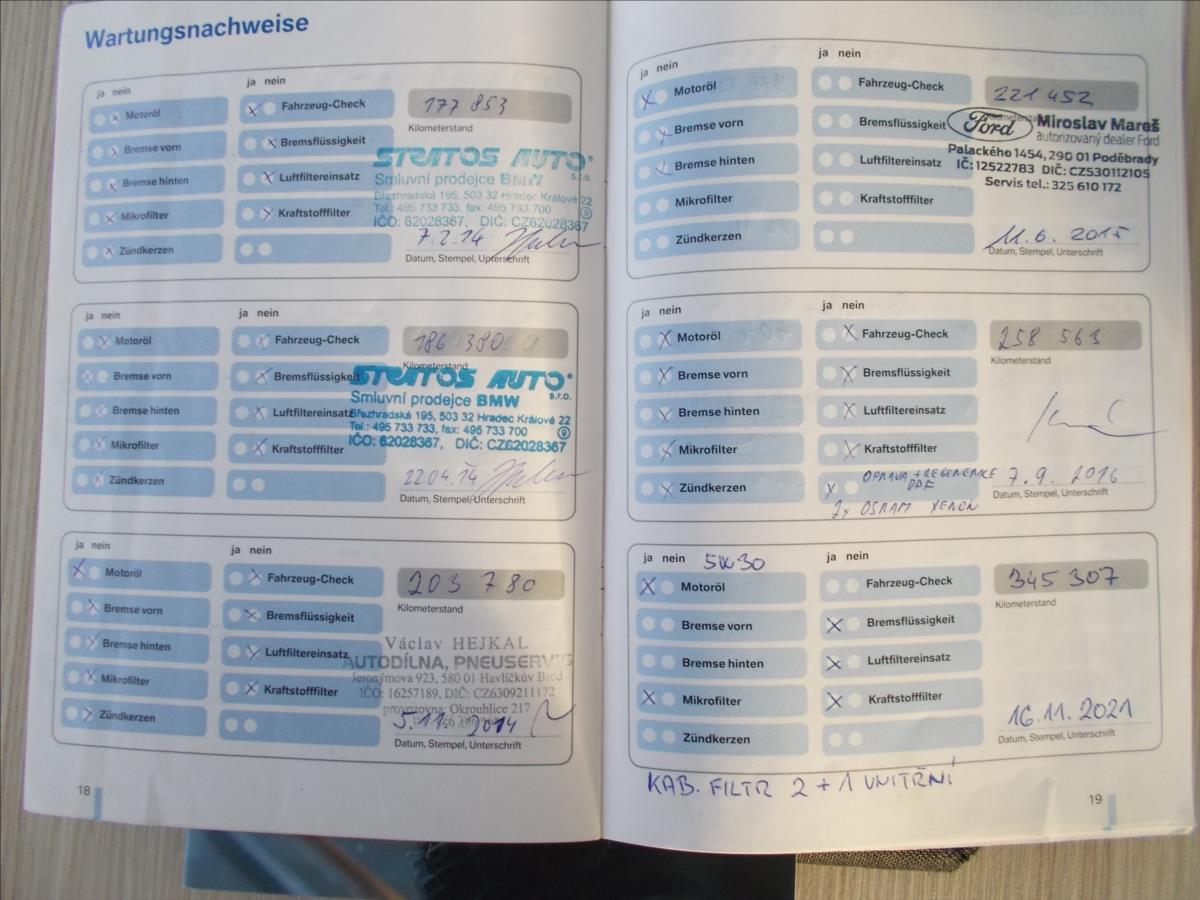 Wartungsnachweise
ja nein
ja nein
Motoröl
Fahrzeug-Check
177 853
Kilometerstand
Bremse vorn
Bremsflüssigkeit
STRATOS AUTO s.r.o.
Smluvní prodejce BMW
Bremse hinten
Luftfiltereinsatz
Březhradská 195, 503 32 Hradec Králové 22
Tel.: 495 733 733, fax: 495 733 700
Mikrofilter
Kraftstofffilter
IČO: 62028367, DIČ: CZ62028367
7.2.14
Zündkerzen
Datum, Stempel, Unterschrift
ja nein
ja nein
Motoröl
Fahrzeug-Check
186 380
Kilometerstand
Bremse vorn
Bremsflüssigkeit
STRATOS AUTO s.r.o.
Smluvní prodejce BMW
Bremse hinten
Luftfiltereinsatz
Březhradská 195, 503 32 Hradec Králové 22
Tel.: 495 733 733, fax: 495 733 700
Mikrofilter
Kraftstofffilter
IČO: 62028367, DIČ: CZ62028367
22.04.14
Zündkerzen
Datum, Stempel, Unterschrift
ja nein
ja nein
Motoröl
Fahrzeug-Check
203 780
Kilometerstand
Bremse vorn
Bremsflüssigkeit
Václav HEJKAL
Bremse hinten
Luftfiltereinsatz
AUTODÍLNA, PNEUSERVIS
Jeronýmova 923, 580 01 Havlíčkův Brod
Mikrofilter
Kraftstofffilter
IČO: 16257189, DIČ: CZ6309211172
provozovna: Okrouhlice 217
5.11. 2014
Zündkerzen
Datum, Stempel, Unterschrift
18
ja nein
ja nein
Motoröl
Fahrzeug-Check
221 452
Bremse vorn
Bremsflüssigkeit
Ford
Miroslav Mareš
autorizovaný dealer Ford
Bremse hinten
Luftfiltereinsatz
Palackého 1454, 290 01 Poděbrady
IČ: 12522783 DIČ: CZ530112105
Servis tel.: 325 610 172
Mikrofilter
Kraftstofffilter
Zündkerzen
11.6. 2015
Datum, Stempel, Unterschrift
ja nein
ja nein
Motoröl
Fahrzeug-Check
258 563
Kilometerstand
Bremse vorn
Bremsflüssigkeit
Bremse hinten
Luftfiltereinsatz
Mikrofilter
Kraftstofffilter
Zündkerzen
OPRAVA + REGENERACE
DPF
7.9. 2016
Datum, Stempel, Unterschrift
OSRAM XENON
ja nein
5W30
ja nein
Motoröl
Fahrzeug-Check
345 307
Kilometerstand
Bremse vorn
Bremsflüssigkeit
Bremse hinten
Luftfiltereinsatz
Mikrofilter
Kraftstofffilter
16.11.2021
Zündkerzen
Datum, Stempel, Unterschrift
KAB. FILTR 2 + 1 VNITŘNÍ
19